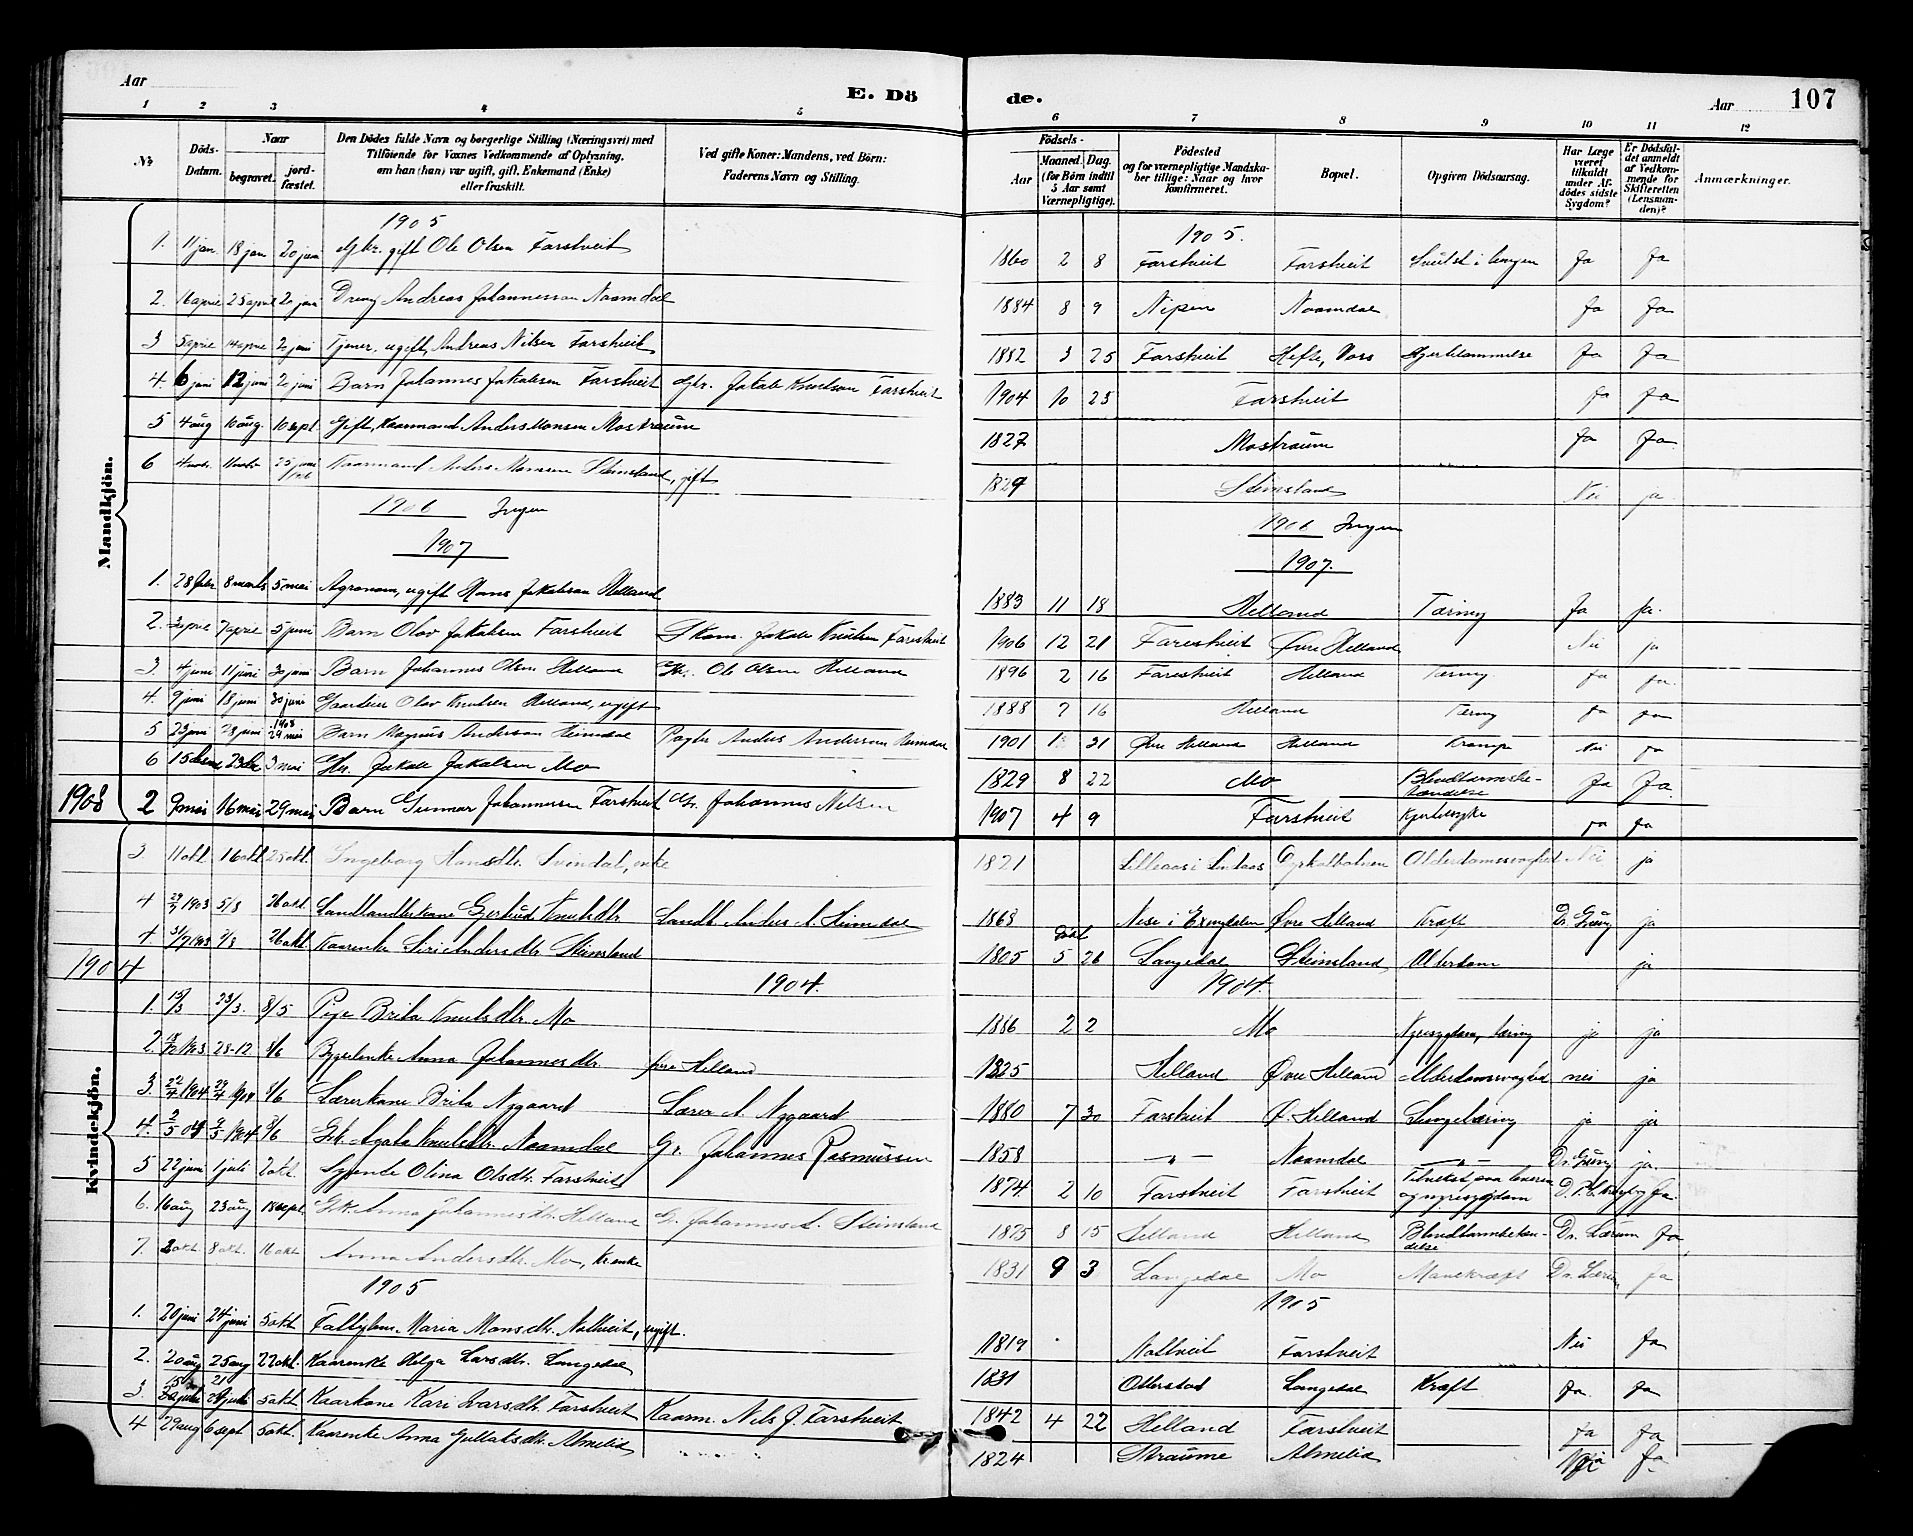 Aar
E. Dö
de.
Aar
107
1 2 3 4 5 6 7 8 9 10 11 12
№
Döds-Datum.
Naar
begravet.
jord-fæstet.
Den Dödes fulde Navn og borgerlige Stilling (Næringsvei) med
Tilföiende for Voxnes Vedkommende af Oplysning,
om han (hun) var ugift, gift, Enkemand (Enke)
eller fraskilt.
Ved gifte Koner: Mandens, ved Börn:
Faderens Navn og Stilling.
Födsels-
Aar
Maaned. Dag.
(for Börn indtil
5 Aar samt
Værnepligtige).
Födested
og for værnepligtige Mandska-
ber tillige: Naar og hvor
konfirmeret.
Bopæl.
Opgiven Dödsaarsag.
Har Læge
været
tilkaldt
under Af-
dödes sidste
Sygdom?
Er Dödsfal-
det anmeldt
af Vedkom-
mende for
Skifteretten
(Lensman-
den)?
Anmærkninger.
Mandkjön.
1905
1905.
1. 11 jan. 18 jan 20 juni gift Ole Olsen Farstveit 1860 2 8 Farstveit Farstveit Ja Ja
2. 16 april 25 april 2 juni Dreng Andreas Johannessen Naamdal 1884 8 9 Nipen Naamdal Ja Ja
3 5 april 14 april 2 juni Tjener, ugift, Andreas Nilsen Farstveit 1882 3 25 Farstveit Hefte, Voss Ja Ja
4. 6 juni 12 juni 2 juni Barn Johannes Jakobsen Farstveit Gbr. Jakob Knutson Farstveit 1904 10 23 Farstveit Ja Ja
5 4 aug 10 aug. 10 sept Gift, Kaarmand Anders Monsen Mostraum 1827 Mostraum Ja Ja
6 4 novbr. 11 novbr 25 juni 1906 Kaarmand Anders Monsen Steinsland, gift 1829 Steinsland Nei ja
1906 Ingen
1906 Ingen
1907
1907.
1. 28 febr 8 marts 5 mai Agronom, ugift Hans Jakobson Helland 1883 11 18 Helland Tæring Ja Ja.
2. 30 april 7 april 5 juni Barn Olav Jakobsen Farstveit Jakob Knutsen Farestveit 1906 12 21 Farestveit Øvre Helland Nei ja
3. 4 juni 11 juni 30 juni Barn Johannes Olsen Helland Gbr. Ole Olsen Helland 1896 2 16 Farestveit Helland Tæring Ja Ja.
4. 9 juni 18 juni 30 juni Gaardeier Olav Knutsen Helland, ugift 1888 7 16 Helland Tæring Ja Ja
5 23 juni 28 juni 1908 29 mai Barn Magnus Anderson Heimdal Anders Anderson Heimdal 1901 21 Øvre Helland Helland Krampe Nei Ja
6 15 23 3 mai Jakob Jakobsen Mo 1829 8 22 Mo Blindtarmsbe-
tændelse Ja Ja.
1908 2 9 mai 16 mai 29 mai Barn Gunnar Johannessen Farstveit Gbr. Johannes Nilsen 1907 4 9 Farstveit Ja Ja
Kvindekjön.
3. 11 okt. 16 okt 25 okt. Ingeborg Hansdtr. Svindal, enke 1821 Lilleaas i Lindaas Alderdomssvaghed Nei ja
4 29/7 1903 5/8 26 okt. Landhandlerkone Gjertrud Knutsdtr Landh. Anders A. Heimdal 1863 Nese i Exingdalen Øvre Helland Kræft Dr. Grung ja
4 31/7 1903 7/8 26 okt Kaarenke Siri Andersdtr Steinsland 1805 5 26 Langedal Steinsland Alderdom ja
1904
1904.
1904.
1. 15/3 23/3. 8/5 Pige Brita Knutsdtr. Mo 1886 2 2 Mo Nyresygdom, tæring ja ja
2. 18/12 1903 28-12 3/6 Anna Johannesdtr Øvre Helland 1825 Helland Øvre Helland Alderdomssvaghed nei ja
3. 22/4 1904 29/4 1904 8/6 Lærerkone Brita Nygaard Lærer A. Nygaard 1880 7 30 Farstveit Ø. Helland Lungetæring ja ja
4. 2/5 04 9/5 1904 3/6 Gk. Agata Knutsdtr. Naamdal Gr. Johannes Rasmussen 1858 — " — Naamdal — " — Dr. Grung ja.
5 22 juni 1 juli 2 okt. Olina Olsdtr. Farstveit 1874 2 10 Farstveit Farstveit og nyresygdom Ja.
6. 16 aug 23 aug 18 sept. Gk. Anna Johannesdtr. Helland G. Johannes A. Steinsland 1875 8 15 Helland Helland Blindtarmbetæn-
delse Dr. Lærum Ja
7. 2 okt. 8 okt. 16 okt Anna Andersdtr. Mo, kr. enke 1831 9 3 Langedal Mo Mavekræft Dr. Lærum Ja
1905
1905
1. 20 juni 24 juni 5 okt. Maria Monsdtr. Naltveit, ugift. 1819 Naltveit Farstveit Nei Ja
2. 20 aug 25 aug 22 okt. Kaarenke Helga Larsdtr. Langedal 1831 Otterstad Langedal Kræft Ja. Ja
3. 15 21 5 okt. Kaarkone Kari Ivarsdtr. Farstveit Kaarm. Nils J. Farstveit 1842 4 22 Helland Farstveit Ja Ja
4 29 aug 6 sept 5 okt. Kaarenke Anna Gullaksdtr. Almelid 1824 Straume Almelid Ja.